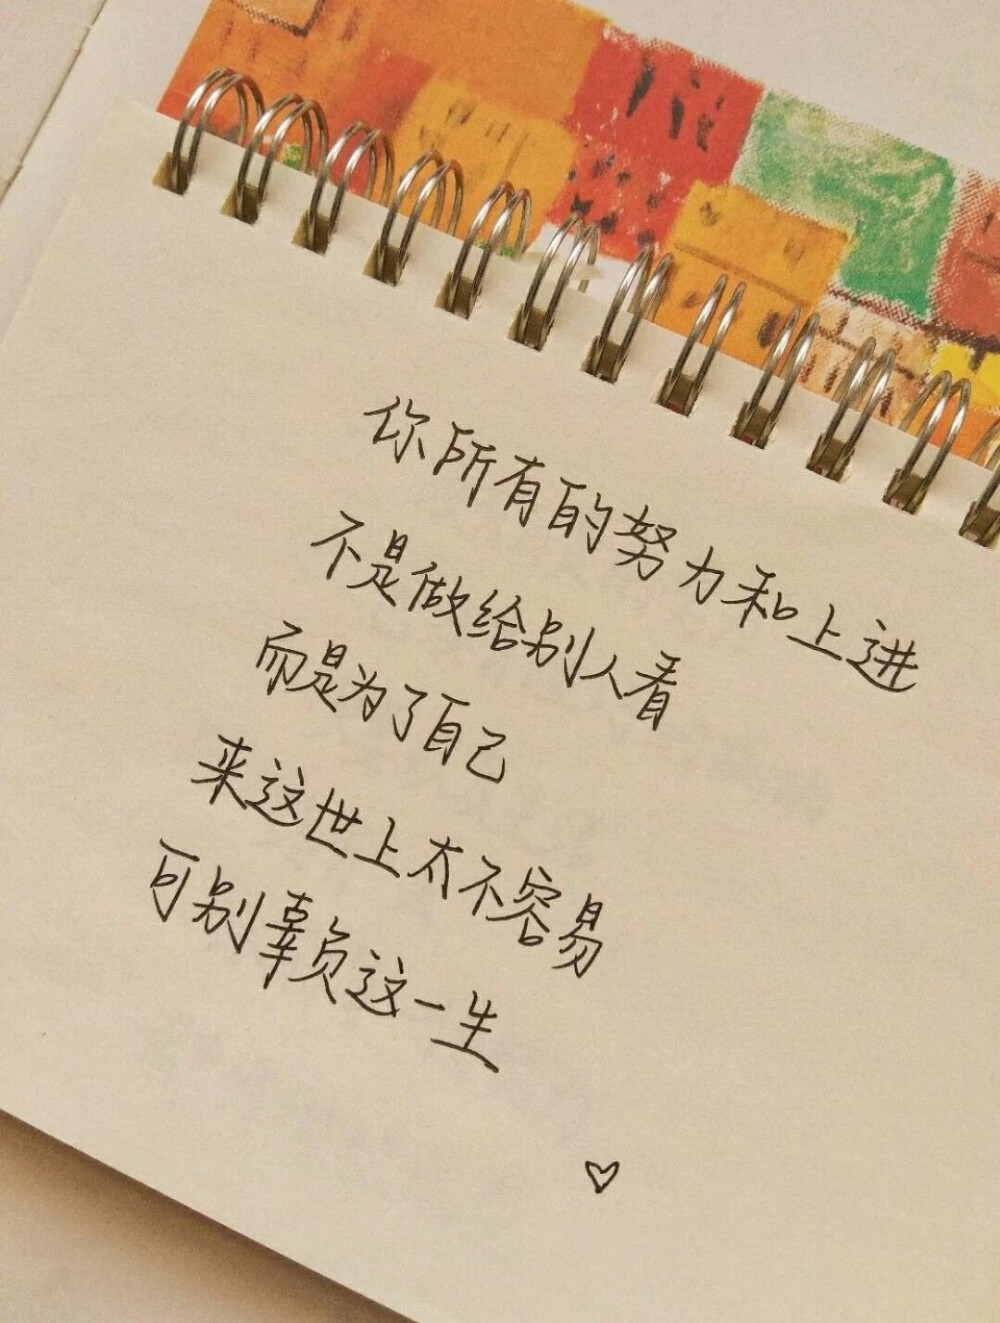 你所有的努力和上进
不是做给别人看
而是为了自己
来这世上太不容易
可别辜负这一生